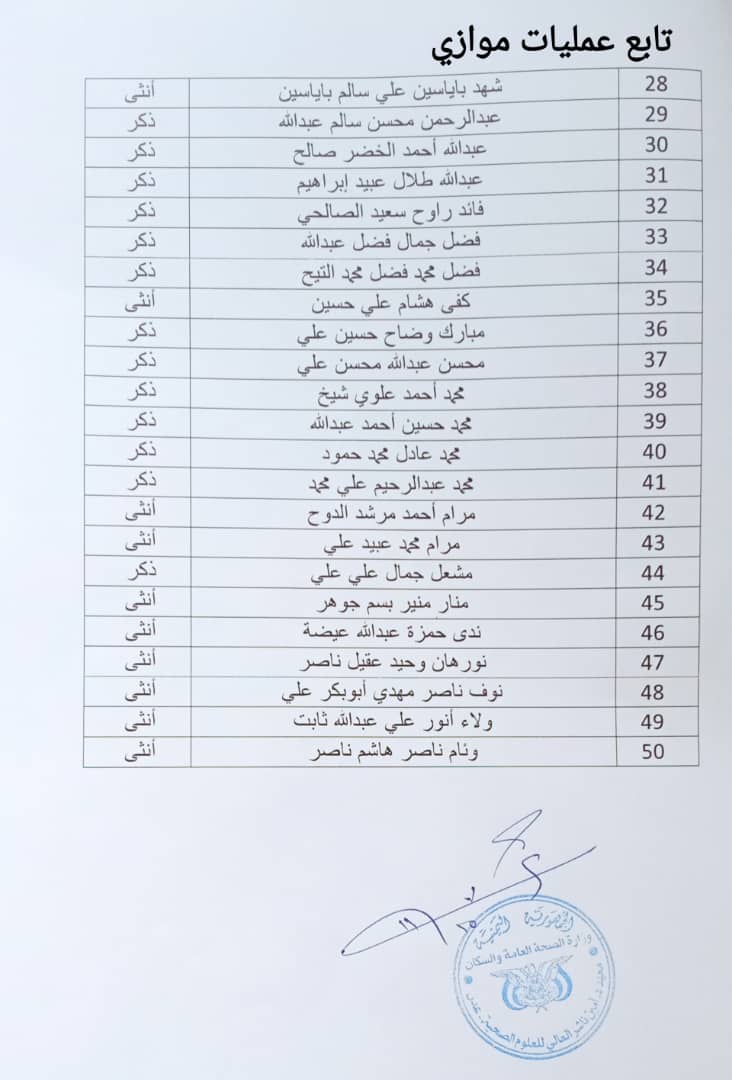 تابع عمليات موازي
28 شهد باياسين علي سالم باياسين أنثى
29 عبدالرحمن محسن سالم عبدالله ذكر
30 عبدالله أحمد الخضر صالح ذكر
31 عبدالله طلال عبيد إبراهيم ذكر
32 فائد راوح سعيد الصالحي ذكر
33 فضل جمال فضل عبدالله ذكر
34 فضل محمد فضل محمد التيح ذكر
35 كفى هشام علي حسين أنثى
36 مبارك وضاح حسين علي ذكر
37 محسن عبدالله محسن علي ذكر
38 محمد أحمد علوي شيخ ذكر
39 محمد حسين أحمد عبدالله ذكر
40 محمد عادل محمد حمود ذكر
41 محمد عبدالرحيم علي محمد ذكر
42 مرام أحمد مرشد الدوح أنثى
43 مرام محمد عبيد علي أنثى
44 مشعل جمال علي علي ذكر
45 منار منير بسم جوهر أنثى
46 ندى حمزة عبدالله عيضة أنثى
47 نورهان وحيد عقيل ناصر أنثى
48 نوف ناصر مهدي أبوبكر علي أنثى
49 ولاء أنور علي عبدالله ثابت أنثى
50 وئام ناصر هاشم ناصر أنثى
الجمهورية اليمنية
وزارة الصحة العامة والسكان
معهد د. أمين ناشر العالي للعلوم الصحية - عدن